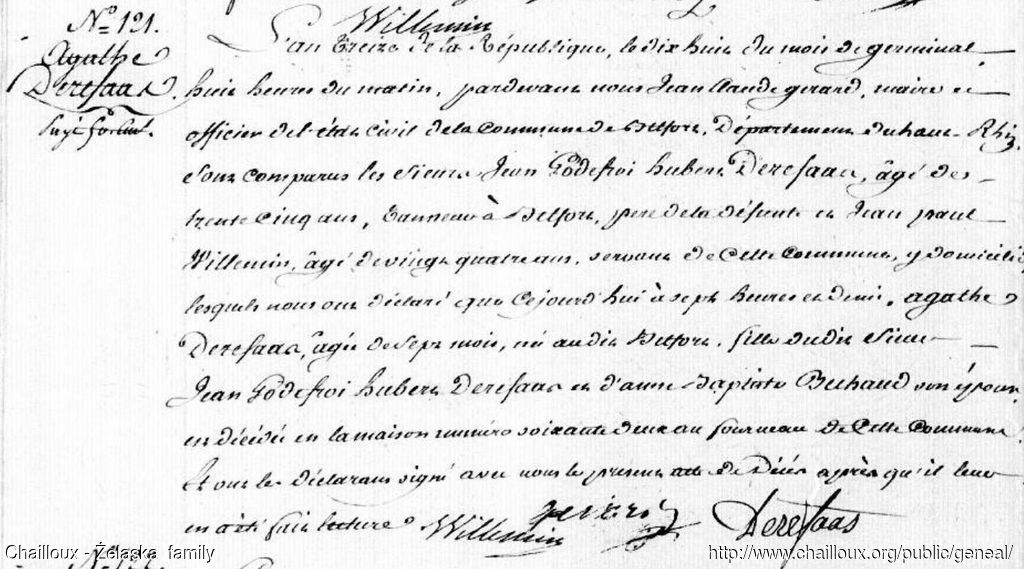 Willemin
No. 121.
Agathe
Deresaas.
L'an treize de la République, le dix huit du mois de germinal
huit heures du matin, pardevant nous Jean Claude gerard, maire et
officier de l'état civil de la Commune de Belfort, Département du haut-Rhin,
Sont comparus les Sieurs Jean Godefroi hubert Deresaas, âgé de
trente cinq ans, tanneur à Belfort, pere de la défunte et Jean paul
Willemin, âgé de vingt quatre ans, servant de Cette Commune, y domicilié
lesquels nous ont déclaré que Cejourd'hui à sept heures et demi, agathe
Deresaas, âgée de Sept mois, né audit Belfort, fille dudit Sieur
Jean Godefroi hubert Deresaas et d'anne Baptiste Buhaud son épouse
est décédé en la maison numéro soixante deux au fourneau de Cette Commune
Et ont les déclarans signé avec nous le présent acte de Décès après qu'il leur
en a été fait lecture
Willemin
gerard
Deresaas
Chailloux - Żelaska family
http://www.chailloux.org/public/geneal/
No. 122.